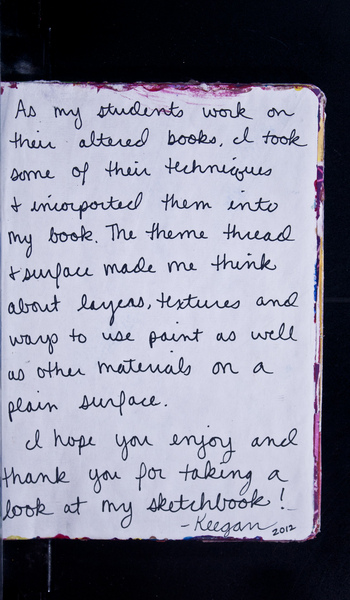 As my students work on
their altered books, I took
some of their techniques
& incorported them into
my book. The theme thread
& surface made me think
about layers, textures and
ways to use paint as well
as other materials on a
plain surface.
I hope you enjoy and
thank you for taking a
look at my sketchbook!
-Keegan 2012